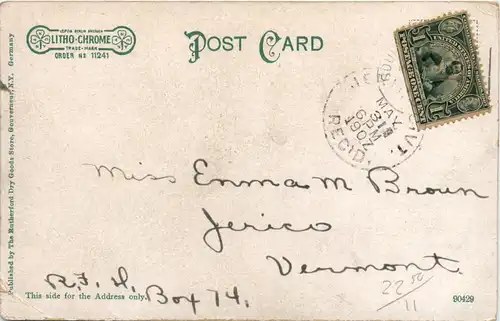 LEPTON BERLIN BRONZED
LITHO-CHROME
TRADE-MARK
ORDER NO 11241
POST CARD
MAY
31
6 PM
1907
REC'D.
VT.
Miss Emma M Brown
Jerico
Vermont.
R.F.D.
Box 74.
This side for the Address only.
90429
22 50
11
Published by The Rutherford Dry Goods Store, Gouverneur, N.Y. Germany